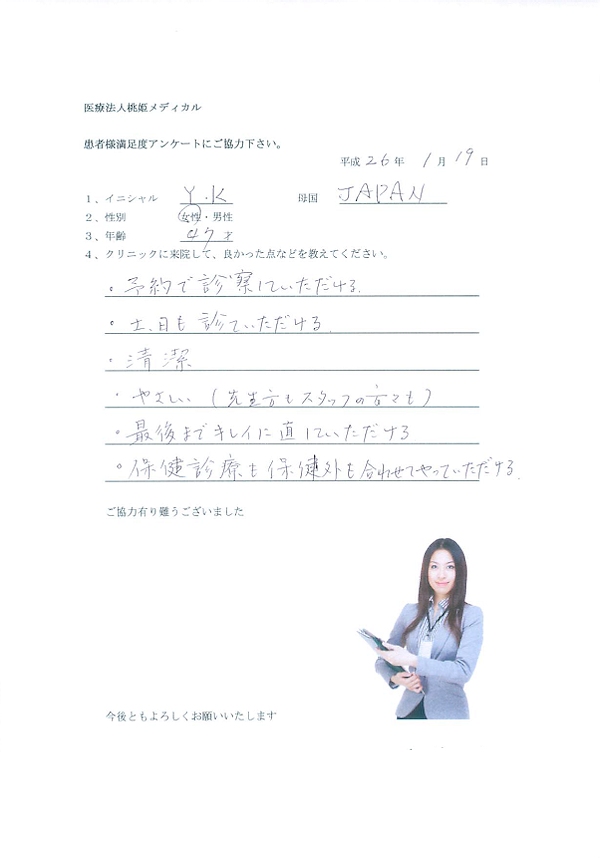 医療法人桃姫メディカル
患者様満足度アンケートにご協力下さい。
平成 26 年 1 月 19 日
1、イニシャル Y.K 母国 JAPAN
2、性別 女性・男性
3、年齢 47才
4、クリニックに来院して、良かった点などを教えてください。
・予約で診察していただける。
・土、日も診ていただける。
・清潔
・やさしい (先生方もスタッフの方々も)
・最後までキレイに直していただける
・保健診療も保健外も合わせてやっていただける。
ご協力有り難うございました
今後ともよろしくお願いいたします